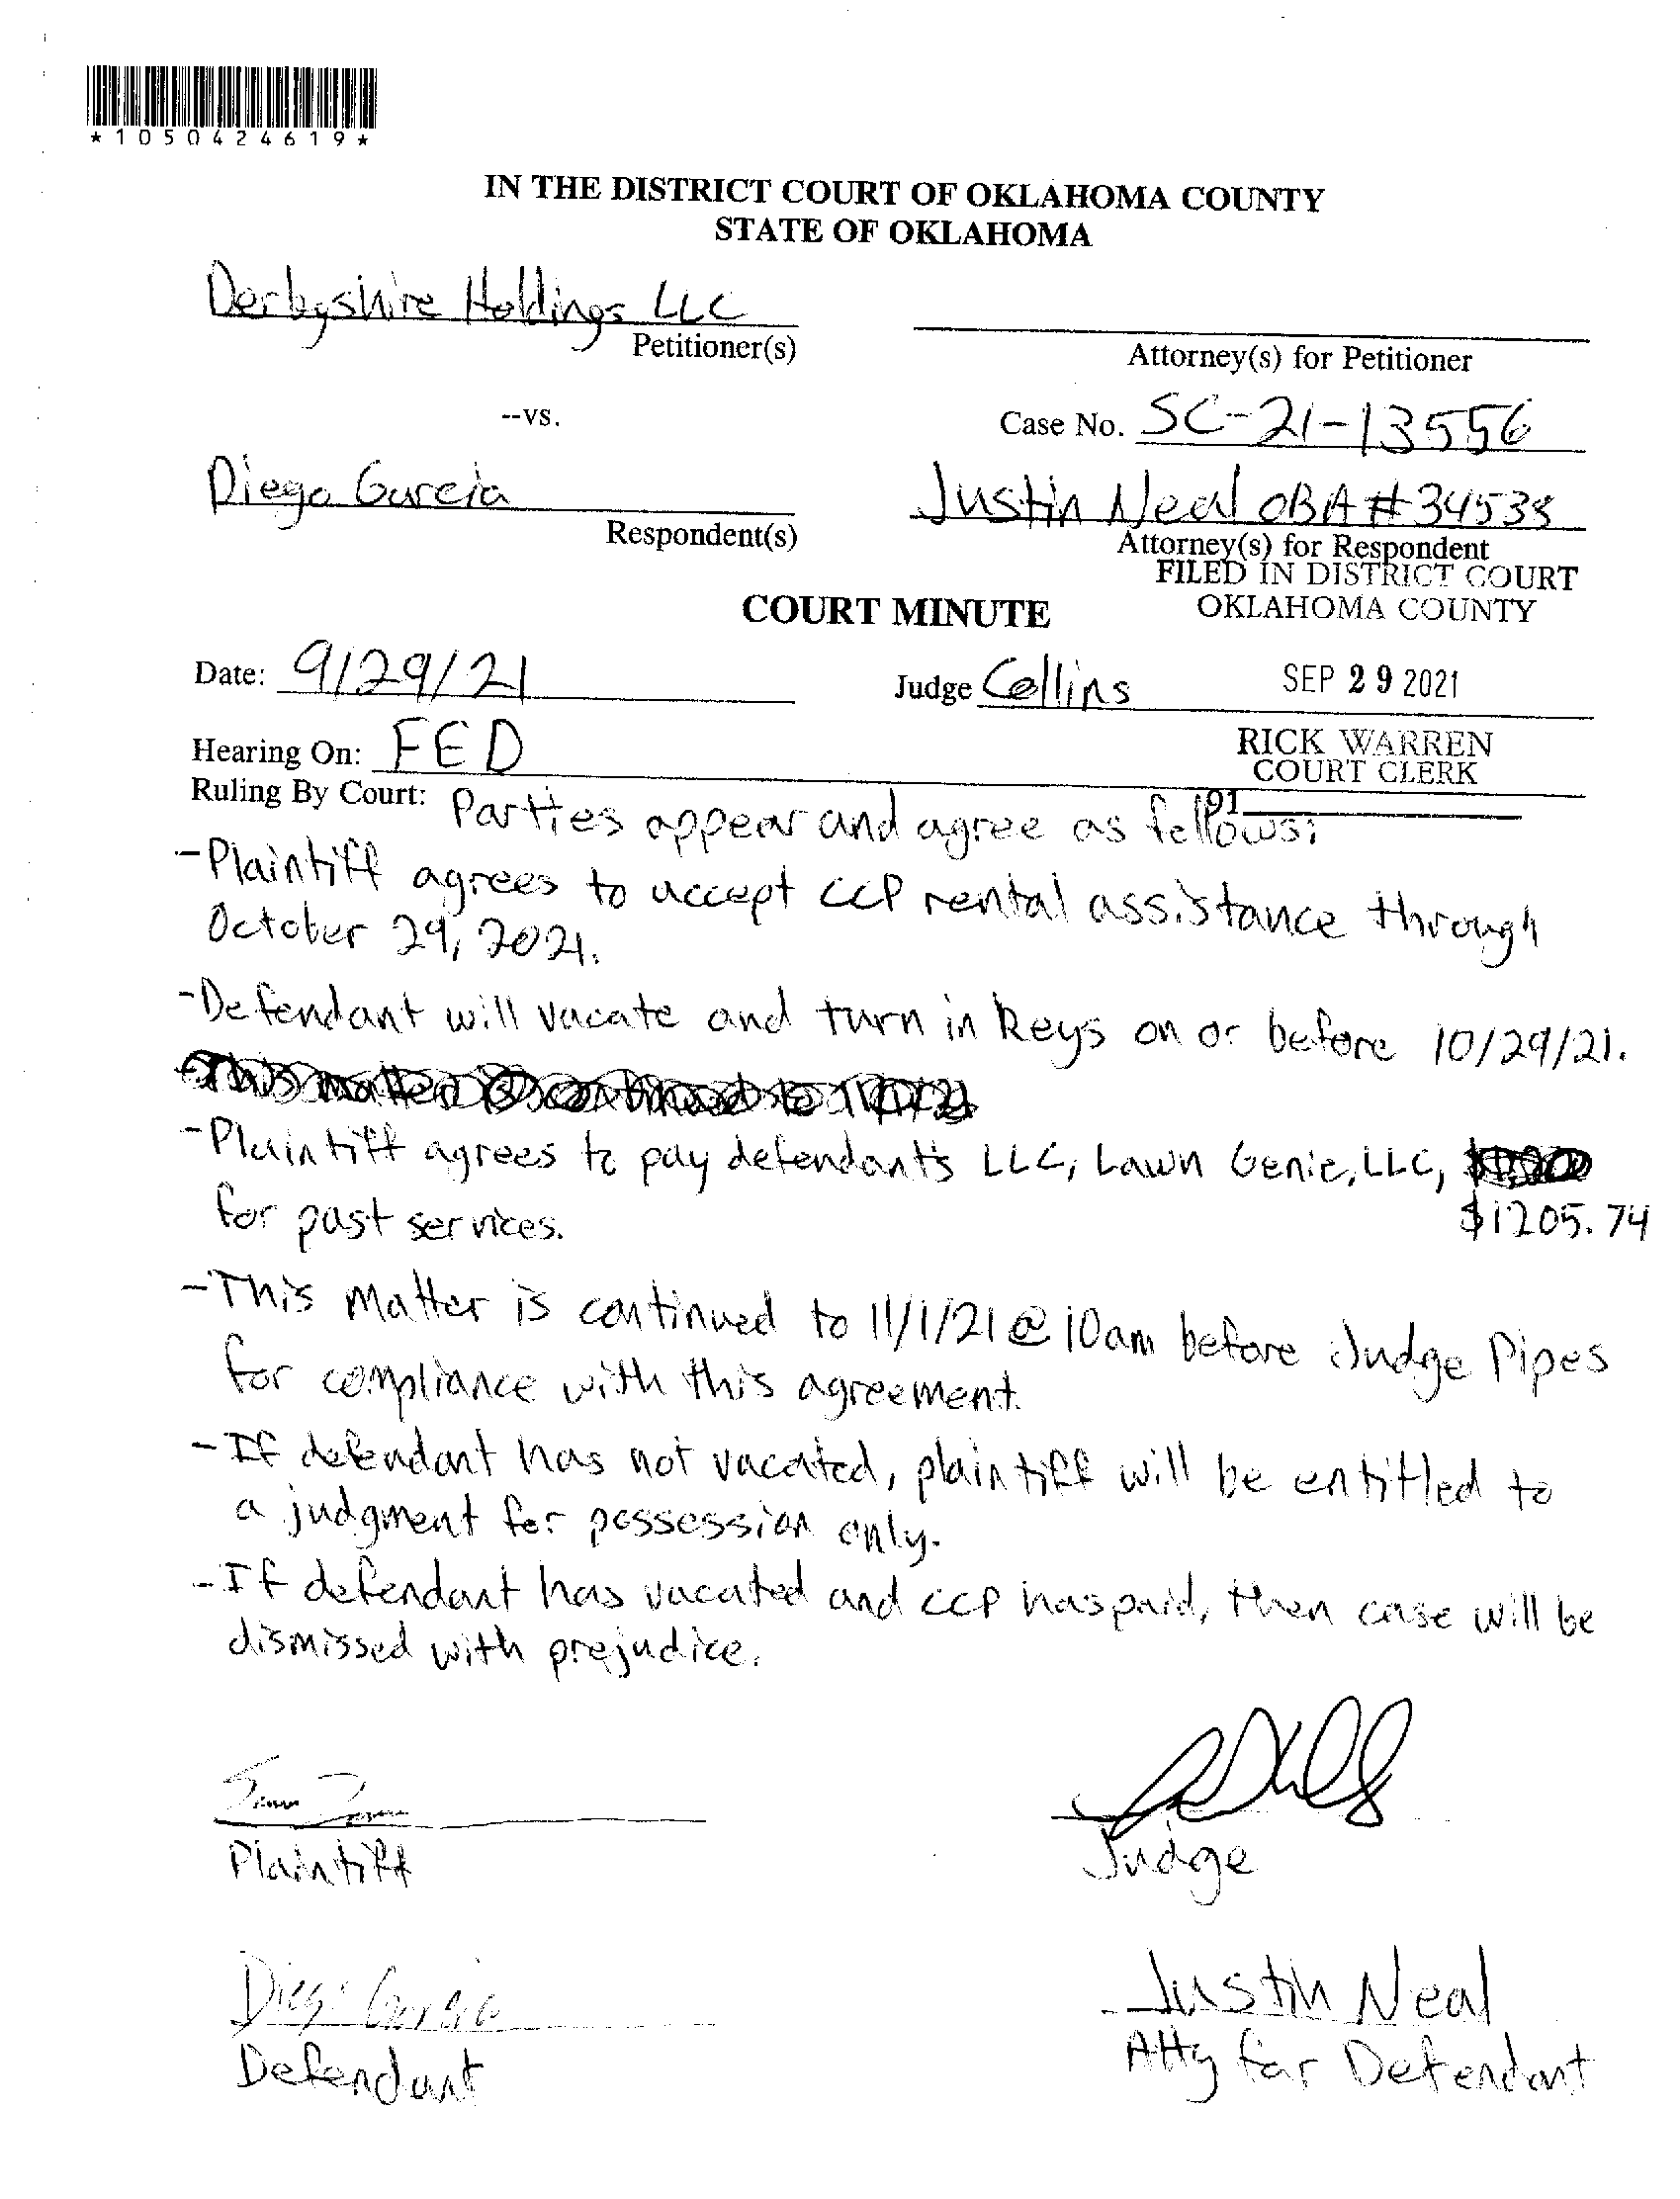 *1050424619*
IN THE DISTRICT COURT OF OKLAHOMA COUNTY
STATE OF OKLAHOMA
Derbyshire Holdings LLC
Petitioner(s)
Attorney(s) for Petitioner
--vs.
Case No. SC-21-13556
Diego Garcia
Respondent(s)
Justin Neal OBA #34538
Attorney(s) for Respondent
FILED IN DISTRICT COURT
OKLAHOMA COUNTY
COURT MINUTE
Date: 9/29/21
Judge Collins
SEP 29 2021
Hearing On: FED
RICK WARREN
COURT CLERK
91
Ruling By Court: Parties appear and agree as follows:
-Plaintiff agrees to accept CCP rental assistance through
October 29, 2021.
-Defendant will vacate and turn in keys on or before 10/29/21.
-This matter is continued to
-Plaintiff agrees to pay defendant's LLC, Lawn Genie, LLC,
for past services. $1205.74
-This matter is continued to 11/1/21 @ 10am before Judge Pipes
for compliance with this agreement.
-If defendant has not vacated, plaintiff will be entitled to
a judgment for possession only.
-If defendant has vacated and CCP has paid, then case will be
dismissed with prejudice.
Plaintiff
Judge
Diego Garcia
Defendant
Justin Neal
Atty for Defendant